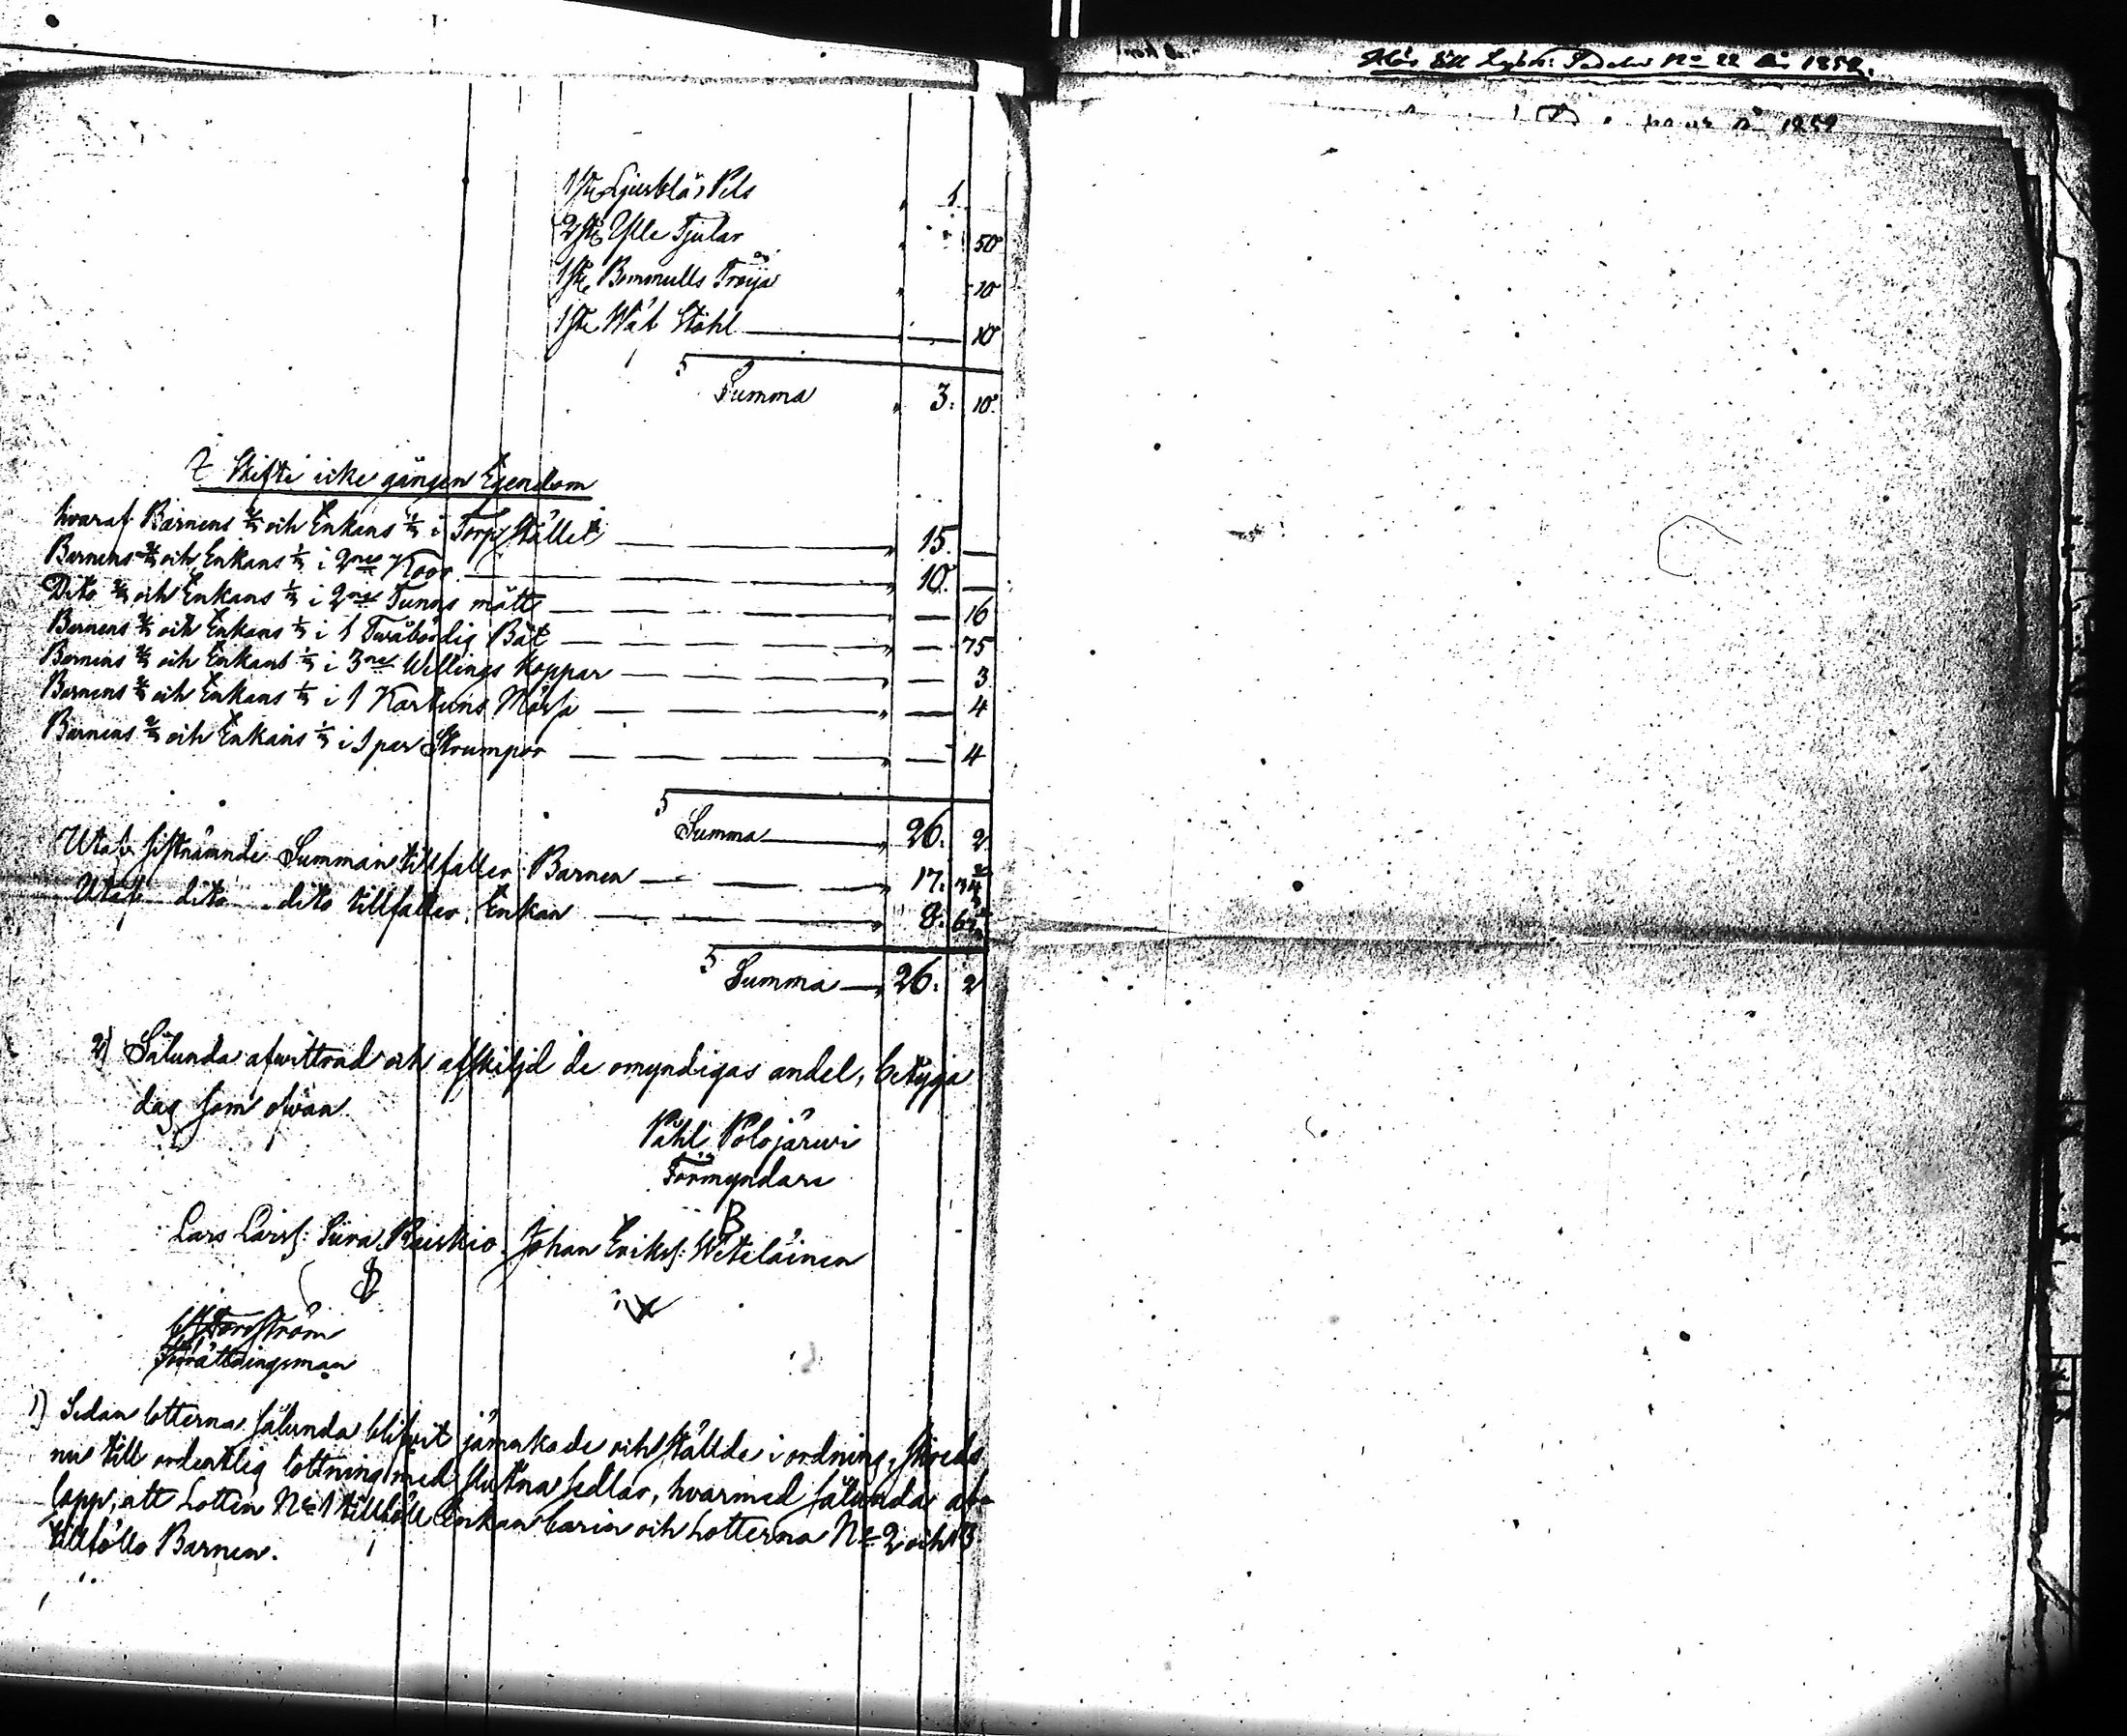 1 st Ljusblå Pels " 1
2 st Ylle Tjular " 50
1 st Bommulls Tröija " 10
1 st Wäf Stohl " 10
Summa " 3. 10.
Skifte icke gången Egendom
hvaraf Barnens 2/3 och Enkans 1/3 i Torp stället " 15. —
Barnens 2/3 och Enkans 1/3 i 2ne Koor " 10. —
Dito 2/3 och Enkans 1/3 i 2ne Tunns mått " — 16
Barnens 2/3 och Enkans 1/3 i 1 Twåbördig Båt " — 75
Barnens 2/3 och Enkans 1/3 i 3ne Wällings Koppar " — 3
Barnens 2/3 och Enkans 1/3 i 1 Kartuns Mössa " — 4
Barnens 2/3 och Enkans 1/3 i 1 par Strumpor " — 4
Summa " 26. 2
Utaf sistnämnde Summan tillfaller Barnen " 17.
Utaf dito dito tillfaller Enkan " 8.
Summa " 26. 2
2) Sålunda afwittrad och afskiljd de omyndigas andel, betyga
dag som ofwan
Påhl Polojärwi
Förmyndare
B
Lars Larss: Suva Raiskio Johan Eriks: Weteläinen
Förrättningsman
1) Sedan lotterna sålunda blifvit jämnkade och stälde i ordning, skreds
nu till ordentlig lottning med slutna sedlar, hvarmed sålunda af-
lopp, att Lotten No 1 tillföll Enkan Carin och Lotterna No 2 och 3
tillföllo Barnen.
Hör till No 22 år 1859.
1859